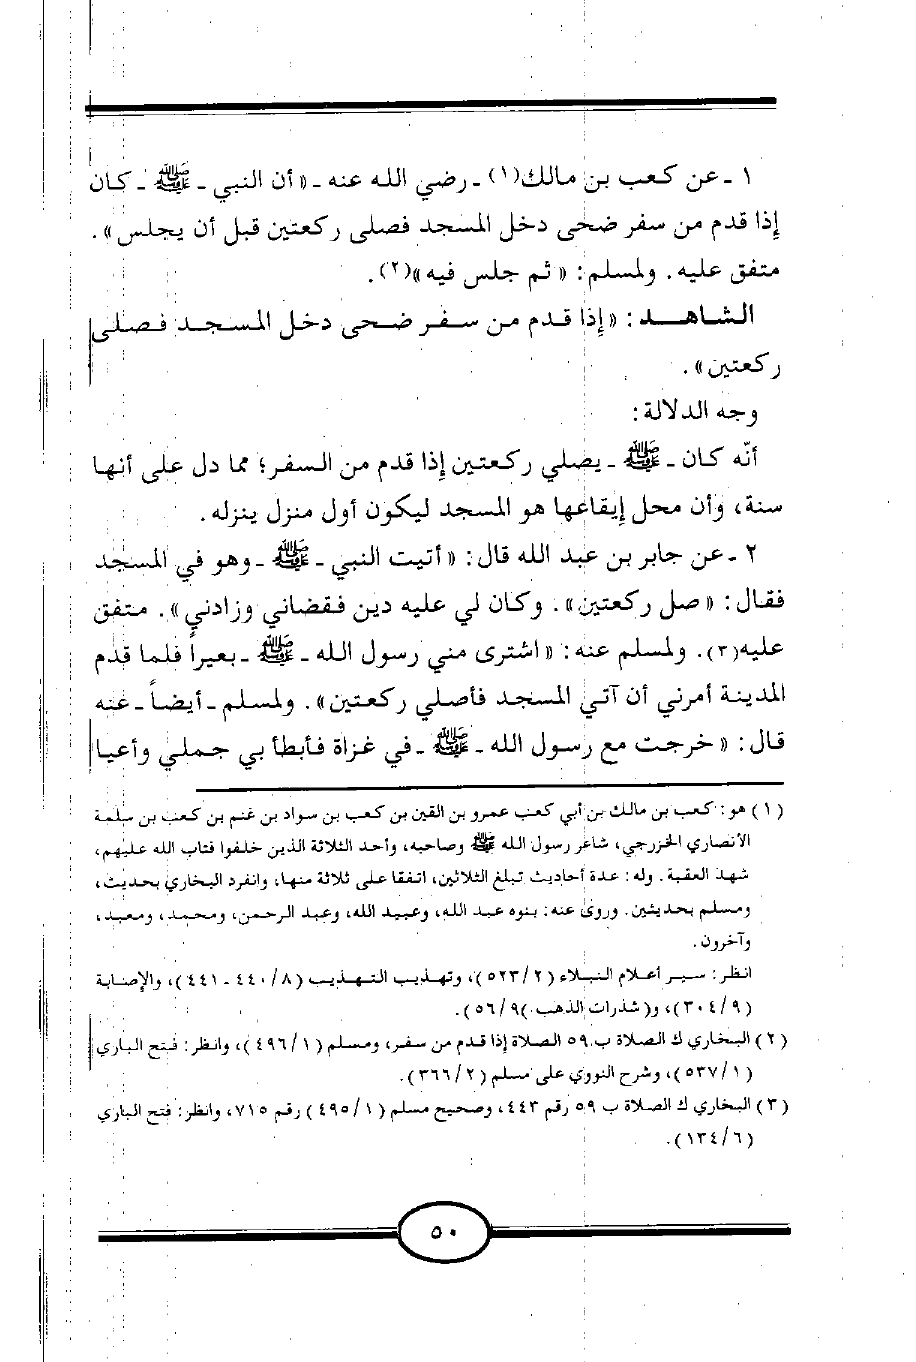 ١ ـ عن كعب بن مالك(١) ـ رضي الله عنه ـ «أن النبي ـ ﷺ ـ كان
إذا قدم من سفر ضحى دخل المسجد فصلى ركعتين قبل أن يجلس».
متفق عليه. ولمسلم: «ثم جلس فيه»(٢).
الشاهد: «إذا قدم من سفر ضحى دخل المسجد فصلى
ركعتين».
وجه الدلالة:
أنّه كان ـ ﷺ ـ يصلي ركعتين إذا قدم من السفر؛ مما دل على أنها
سنة، وأن محل إيقاعها هو المسجد ليكون أول منزل ينزله.
٢ ـ عن جابر بن عبد الله قال: «أتيت النبي ـ ﷺ ـ وهو في المسجد
فقال: «صل ركعتين». وكان لي عليه دين فقضاني وزادني». متفق
عليه(٣). ولمسلم عنه: «اشترى مني رسول الله ـ ﷺ ـ بعيراً فلما قدم
المدينة أمرني أن آتي المسجد فأصلي ركعتين». ولمسلم ـ أيضاً ـ عنه
قال: «خرجت مع رسول الله ـ ﷺ ـ في غزاة فأبطأ بي جملي وأعيا
(١) هو: كعب بن مالك بن أبي كعب عمرو بن القين بن كعب بن سواد بن غنم بن كعب بن سلمة
الأنصاري الخزرجي، شاعر رسول الله ﷺ وصاحبه، وأحد الثلاثة الذين خلفوا فتاب الله عليهم،
شهد العقبة. وله: عدة أحاديث تبلغ الثلاثين، اتفقا على ثلاثة منها، وانفرد البخاري بحديث،
ومسلم بحديثين. وروى عنه: بنوه عبد الله، وعبيد الله، وعبد الرحمن، ومحمد، ومعبد،
وآخرون.
انظر: سير أعلام النبلاء (٥٢٣/٢)، وتهذيب التهذيب (٤٤٠/٨ ـ ٤٤١)، والإصابة
(٣٠٤/٩)، و(شذرات الذهب )(٥٦/٩).
(٢) البخاري ك الصلاة ب ٥٩ الصلاة إذا قدم من سفر، ومسلم (٤٩٦/١)، وانظر: فتح الباري
(٥٣٧/١)، وشرح النووي على مسلم (٣٦٦/٢).
(٣) البخاري ك الصلاة ب ٥٩ رقم ٤٤٣، وصحيح مسلم (٤٩٥/١) رقم ٧١٥، وانظر: فتح الباري
(١٣٤/٦).
٥٠